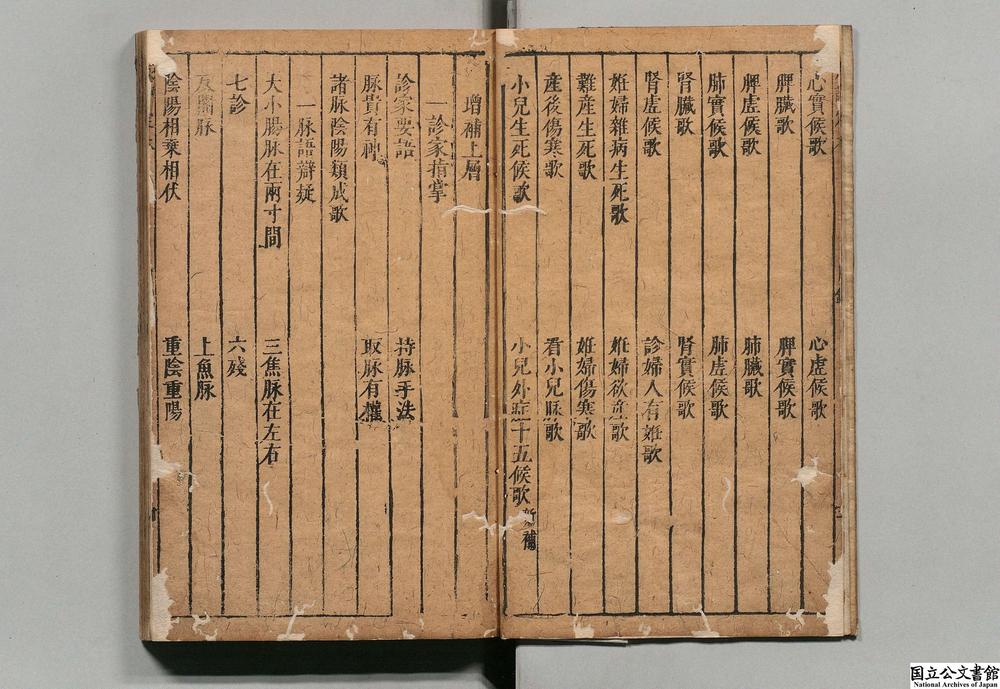 心實候歌　心虛候歌
脾臟歌　脾實候歌
脾虛候歌　肺臟歌
肺實候歌　肺虛候歌
腎臟歌　腎實候歌
腎虛候歌　診婦人有姙歌
姙婦雜病生死歌　姙婦欲產歌
難產生死歌　姙婦傷寒歌
產後傷寒歌　看小兒脉歌
小兒生死候歌　小兒外症十五候歌 新補
增補上層
一診家指掌
診家要語　持脉手法
脉貴有神　取脉有權
諸脉陰陽類成歌
一脉語辯疑
大小腸脉在兩寸間　三焦脉在左右
七診　六殘
反關脉　上魚脉
陰陽相乘相伏　重陰重陽
国立公文書館
National Archives of Japan